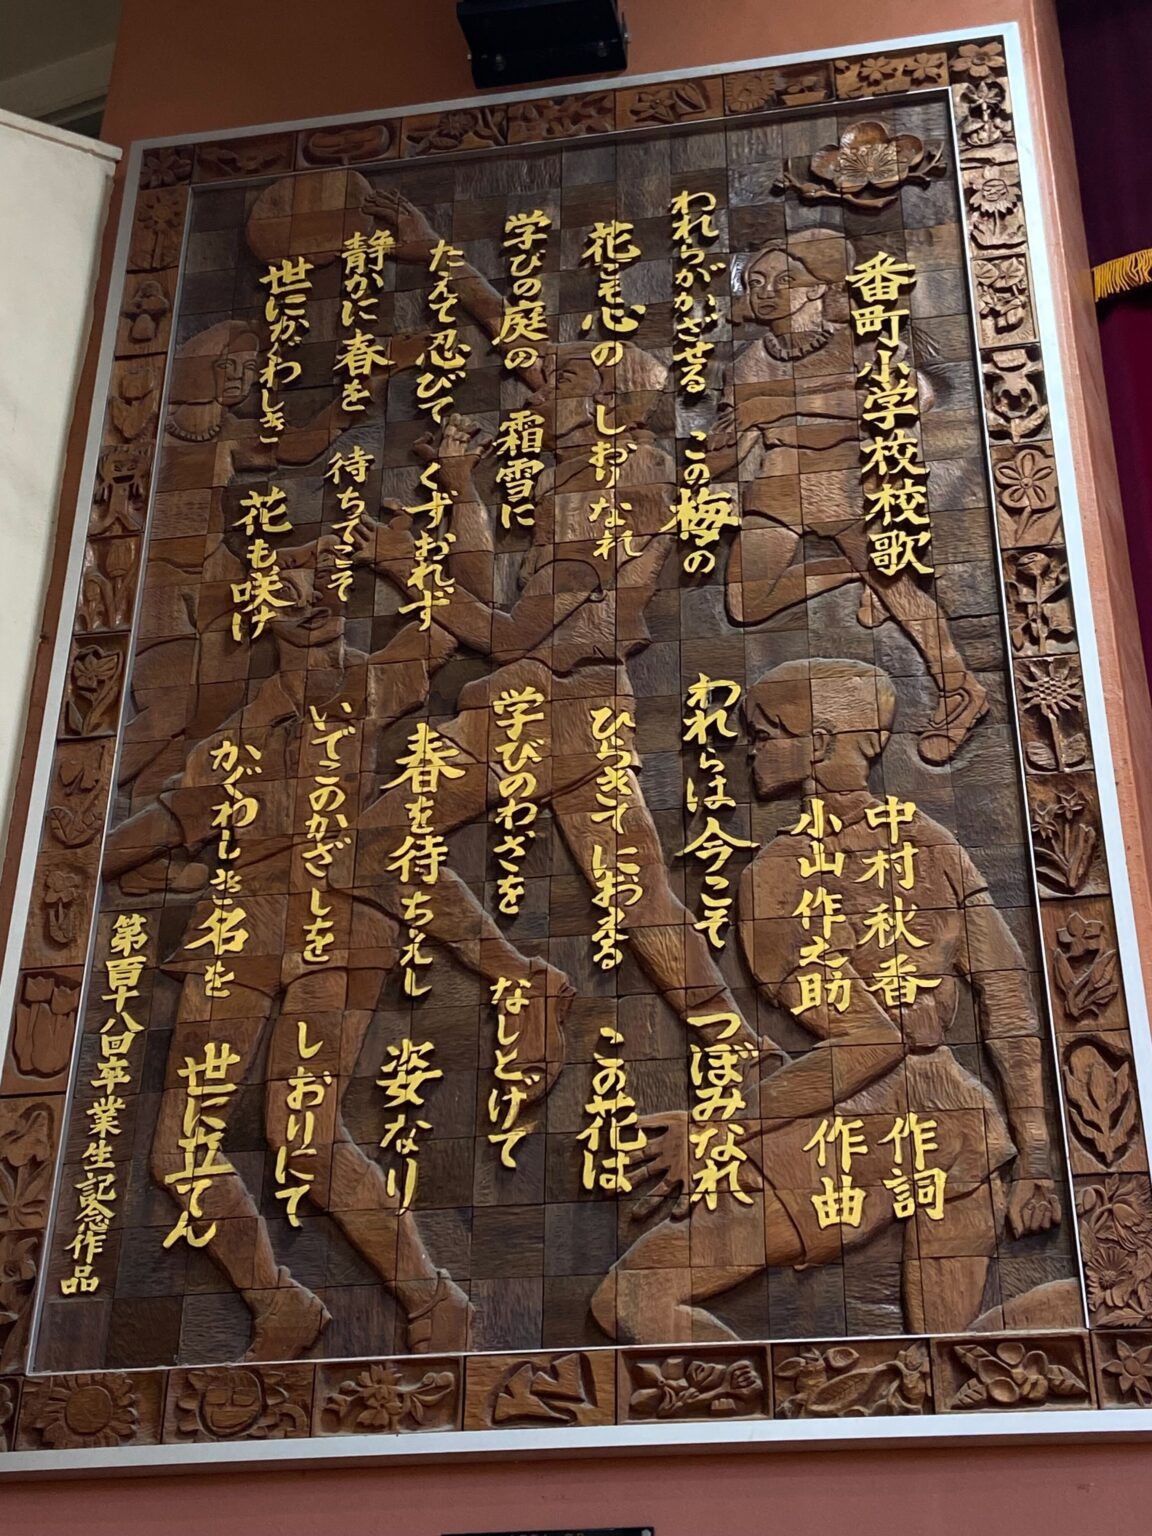 番町小学校校歌
中村秋香 作詞
小山作之助 作曲
われらがかざせる この梅の
花こそ心の しおりなれ
学びの庭の 霜雪に
たえて忍びて くずおれず
静かに春を 待ちてこそ
世にかぐわしき 花も咲け
われらは今こそ つぼみなれ
ひらきて この花は
学びのわざを なしとげて
春を待ちえし 姿なり
いでこのかざしを しおりにて
かぐわしき名を 世に立てん
第百十八回卒業生記念作品